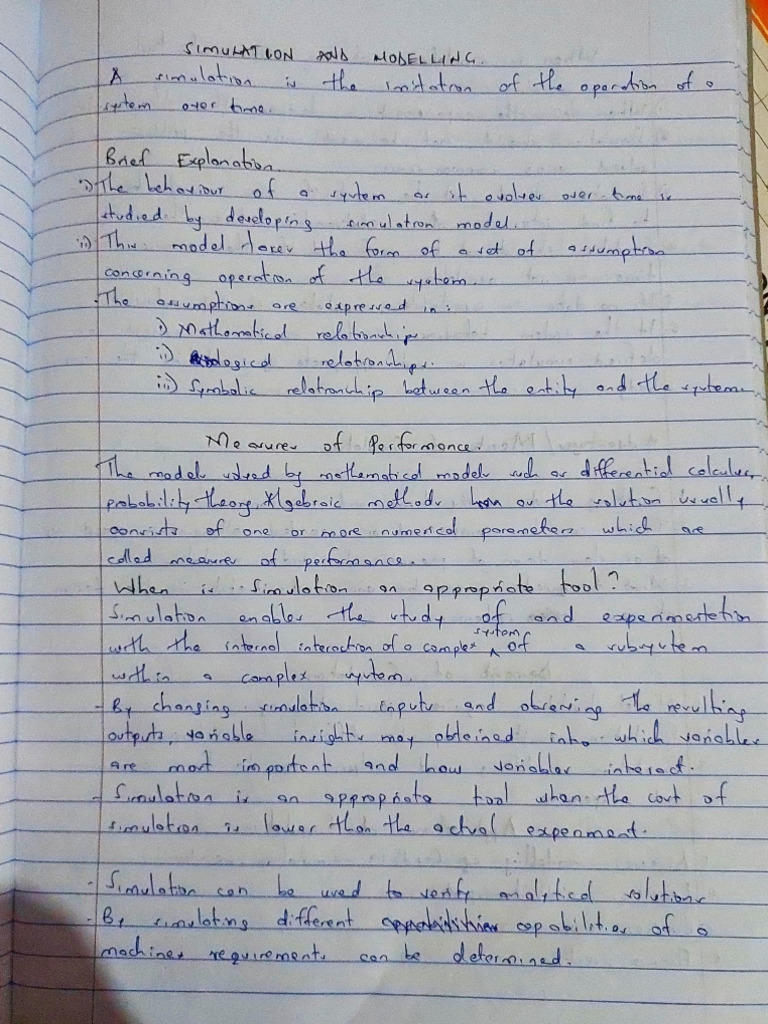 SIMULATION AND MODELLING.
A simulation is the imitation of the operation of a
system over time.
Brief Explanation.
i) The behaviour of a system as it evolves over time is
studied by developing simulation model.
ii) This model takes the form of a set of assumption
concerning operation of the system.
- The assumptions are expressed in:
i) Mathematical relationship
ii) logical relationships.
iii) Symbolic relationship between the entity and the system.
Measures of Performance.
The models solved by mathematical models such as differential calculus,
probability theory, Algebraic methods has as the solution usually
consists of one or more numerical parameters which are
called measures of performance.
When is Simulation an appropriate tool?
Simulation enables the study of and experimentation
with the internal interaction of a complex system of a subsystem
within a complex system.
- By changing simulation inputs and observing the resulting
outputs, variable insights may obtained into which variables
are most important and how variables interact.
- Simulation is an appropriate tool when the cost of
simulation is lower than the actual experiment.
- Simulation can be used to verify analytical solutions
- By simulating different capabilities of a
machines requirements can be determined.